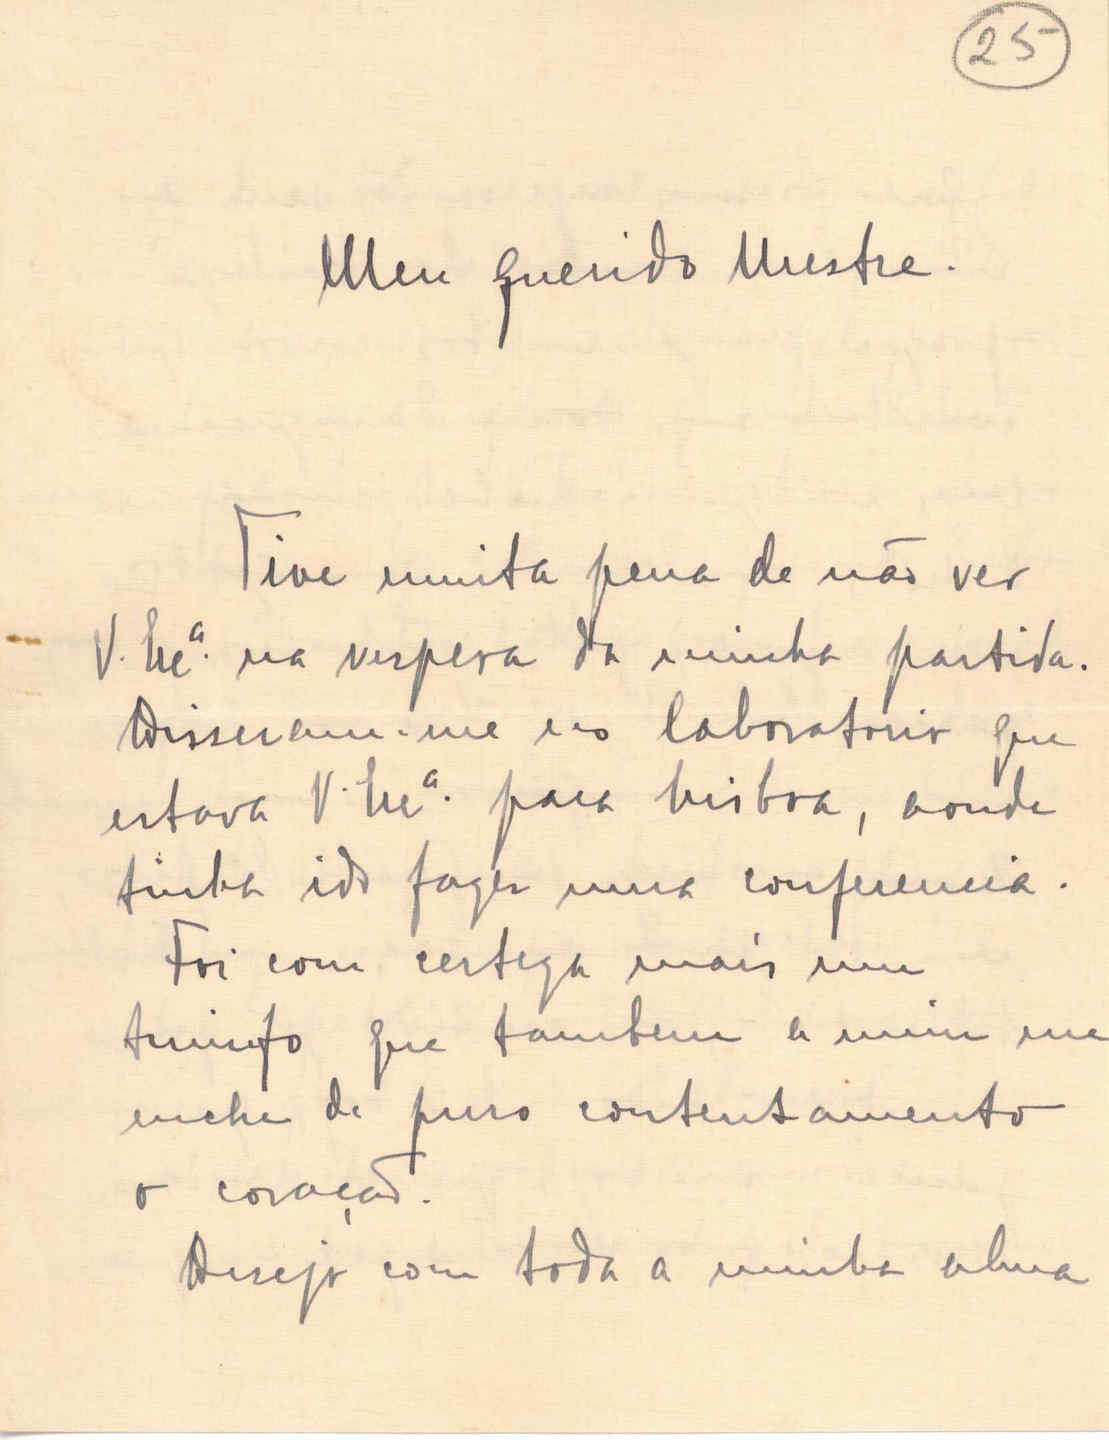 25
Meu querido Mestre.
Tive muita pena de não ver
V. Ex.ª na vespera da minha partida.
Disseram-me no laboratorio que
estava V. Ex.ª para Lisboa, aonde
tinha ido fazer uma conferencia.
Foi com certeza mais um
triunfo que tambem a mim me
enche de puro contentamento
o coração.
Desejo com toda a minha alma